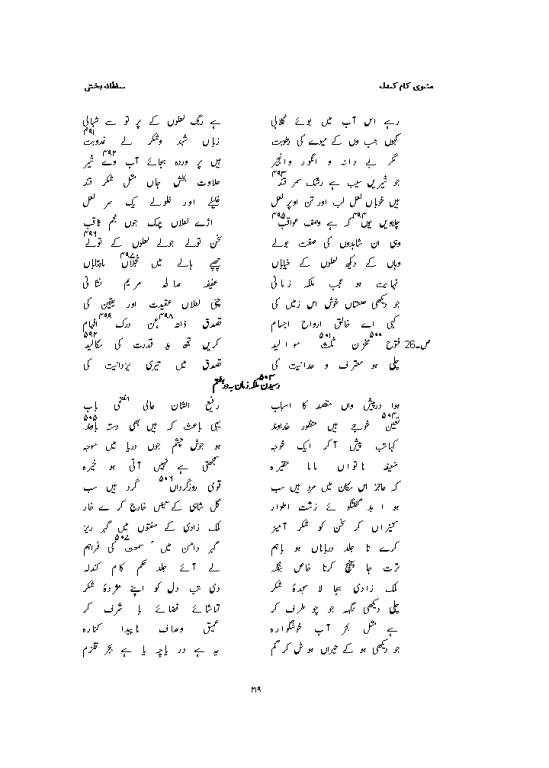 مثنوی کام کندلہ سلطان بخشی
رہے اس آب میں بوئے گلابی ہے رنگ لعلوں کے پر تو سے شہابی
کہوں جب وں کے میوے کی رطوبت زباں شہد وشکر لے عذوبت ۴۹۱
مگر بے دانہ و انگور وانجیر ہیں پر وردہ بجائے آب وے شیر ۴۹۲
جو شیریں سیب ہے رشک سمر قند ۴۹۳ حلاوت بخش جاں مثل شکر قند
ہیں خوباں لعل لب اور تن اوپر لعل
چلاویں یوں ۴۹۴ کہ ہے وصف عواقب ۴۹۵ اڑے لعلاں چمک جوں نجم ثاقب
وہی ان شاہدوں کی صفت بولے سخن تولے جولے لعلوں کے تولے ۴۹۶
وہاں کے دیکھ لعلوں کے خیاباں چھپے ہالے میں ماہتاباں ۴۹۷
نہایت ہو عجب ملکہ زمانی عفیفہ صالحہ مریم نشانی
جو دیکھی صنعتاں خوش اس زمیں کی چنی لعلاں عقیدت اور یقیں کی
کہی اے خالق ارواح اجسام تصدق ذات ۴۹۸ درک ۴۹۹ افہام
ص۔26 فتوح ۵۰۰ مخزن ۵۰۱ موالید کریں تجھ ید قدرت کی مکالید ۵۰۲
چلی ہو معترف وحدانیت کی تصدق میں تیری یزدانیت کی
رسیدن ملکہ زماں بہ دز ہفتم ۵۰۳
ہوا درپیش واں مقصد کا اسباب رفیع الشان عالی باب
تعین ۵۰۴ خوجے ہیں منظور خداوند یہی باعث کہ ہیں بھی دستہ باوند ۵۰۵
کہا تب پیش آکر ایک خوجہ ہو جوش چشم جوں دریا میں موجہ
ضعیفہ ناتواں ماما حقیرہ سمجھتی ہے نہیں آتی ہو خیرہ
کہ عاجز اس مکان میں مرد ہیں سب قوی روزگرداں ۵۰۶ گرد ہیں سب
ہوا بد گفتگو ئے زشت اطوار گل شاہی کے تیئں خارج کرے خار
کنیزاں کر سخن کو شکر آمیز ملک زادی کے صفتوں میں گہر ریز
کرے تا جلد درباناں ہو باہم گہر دامن میں ۵۰۷ کی فراہم
ترت جا پہنچ کرنا خاص بنگلہ لے آئے جلد حکم کام کندلہ
ملک زادی بجا لا سجدۂ شکر دی تب دل کو اپنے مژدۂ شکر
چلی دیکھی نگہہ جو چو طرف کر تماشائے فضائے با شرف کر
ہے مثل بحر آب خوشگوارہ عمیق وصاف ناپیدا کنارہ
جو دیکھی ہو کے حیراں ہوش کر گم یہ ہے دریاچہ یا ہے بحر قلزم
۲۱۹